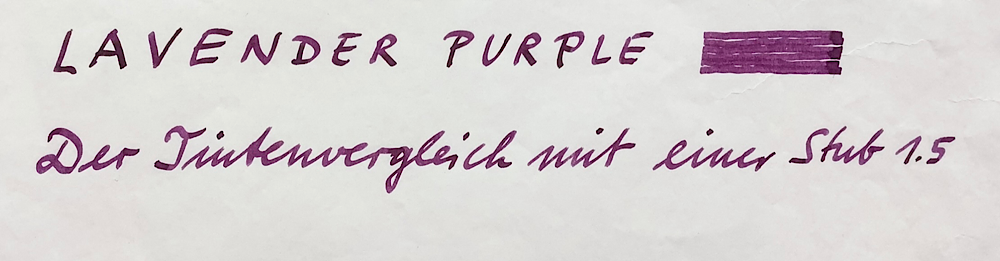 LAVENDER PURPLE
Der Tintenvergleich mit einer Stub 1.5